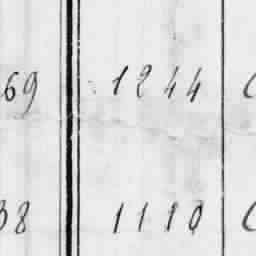 69 1244
38 1110